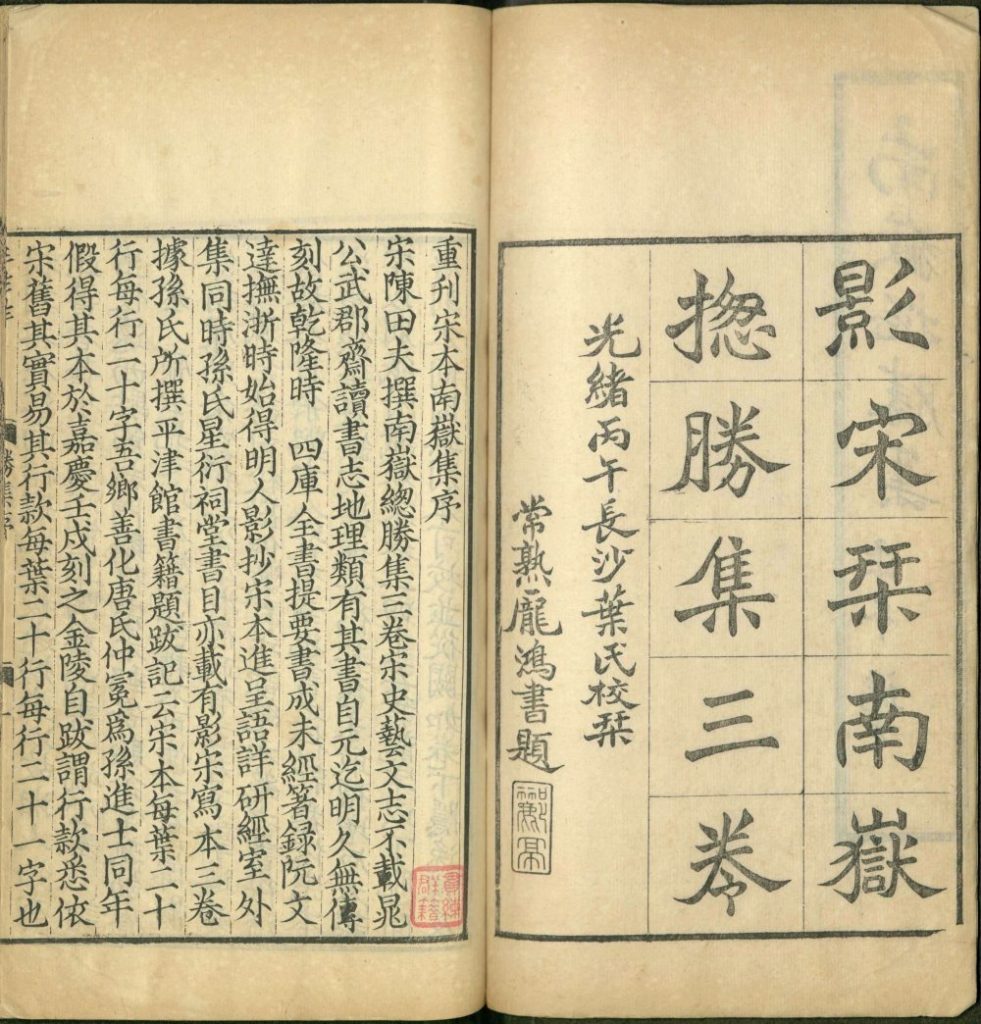 影宋栞南嶽
揔勝集三卷
光緒丙午長沙葉氏校栞
常熟龐鴻書題
重刊宋本南嶽集序
宋陳田夫撰南嶽總勝集三卷宋史藝文志不載晁
公武郡齋讀書志地理類有其書自元迄明久無傳
刻故乾隆時 四庫全書提要書成未經著録阮文
達撫浙時始得明人影抄宋本進呈語詳研經室外
集同時孫氏星衍祠堂書目亦載有影宋寫本三卷
據孫氏所撰平津館書籍題跋記云宋本每葉二十
行每行二十字吾鄉善化唐氏仲冕爲孫進士同年
假得其本於嘉慶壬戌刻之金陵自跋謂行款悉依
宋舊其實易其行款每葉二十行每行二十一字也